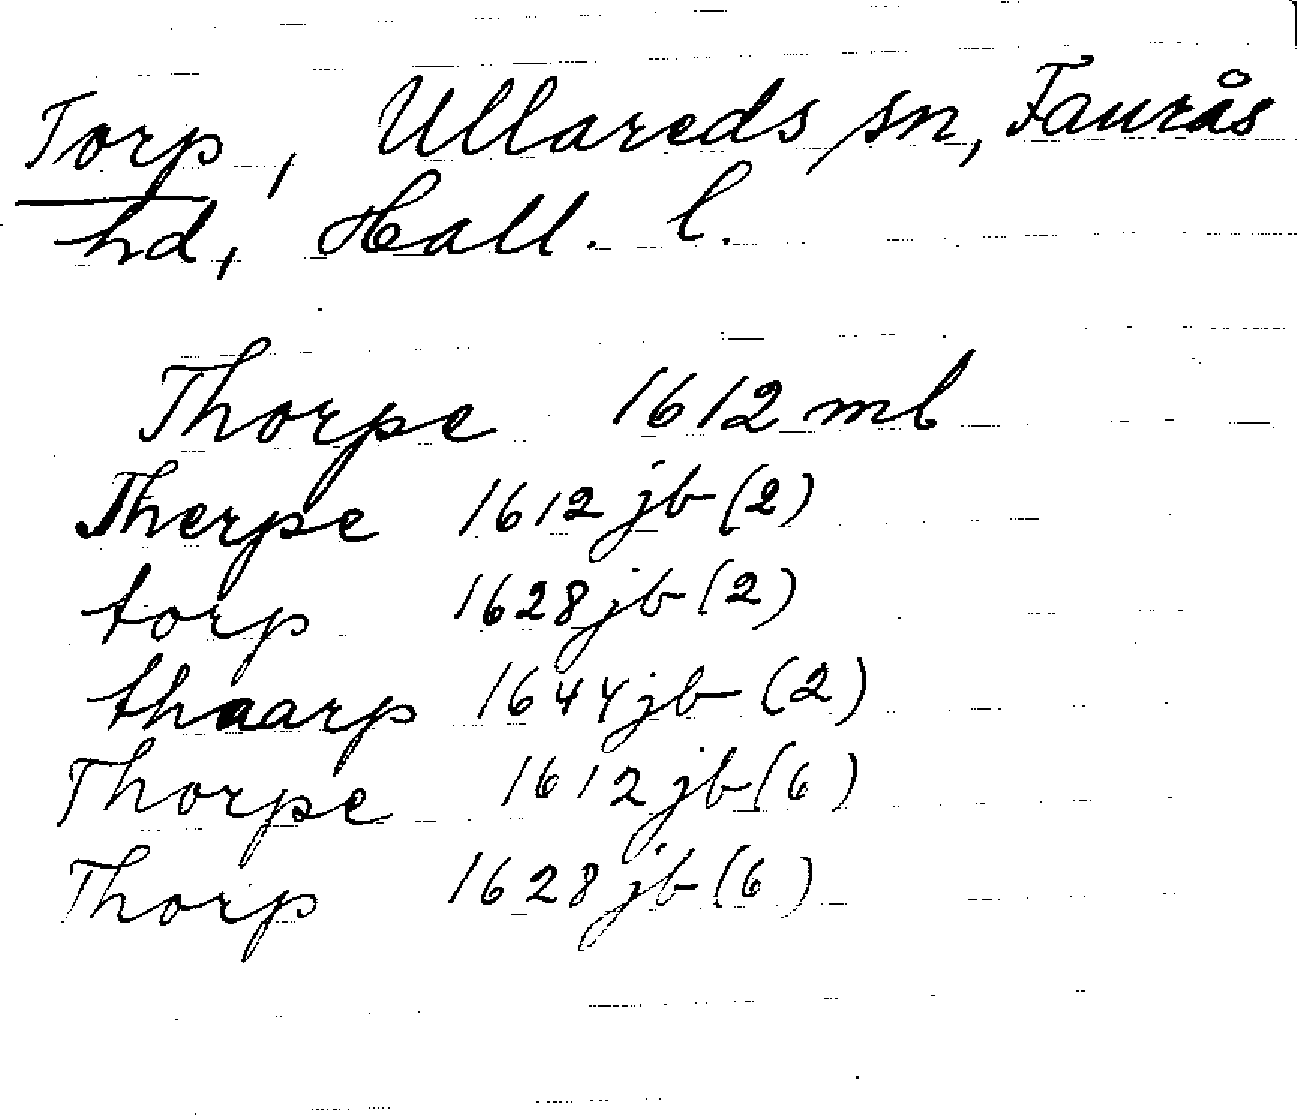 Torp, Ullareds sn, Faurås
hd, Hall. l.
Thorpe 1612 ml
Therpe 1612 jb (2)
torp 1628 jb (2)
thaarp 1644 jb (2)
Thorpe 1612 jb (6)
Thorp 1628 jb (6)